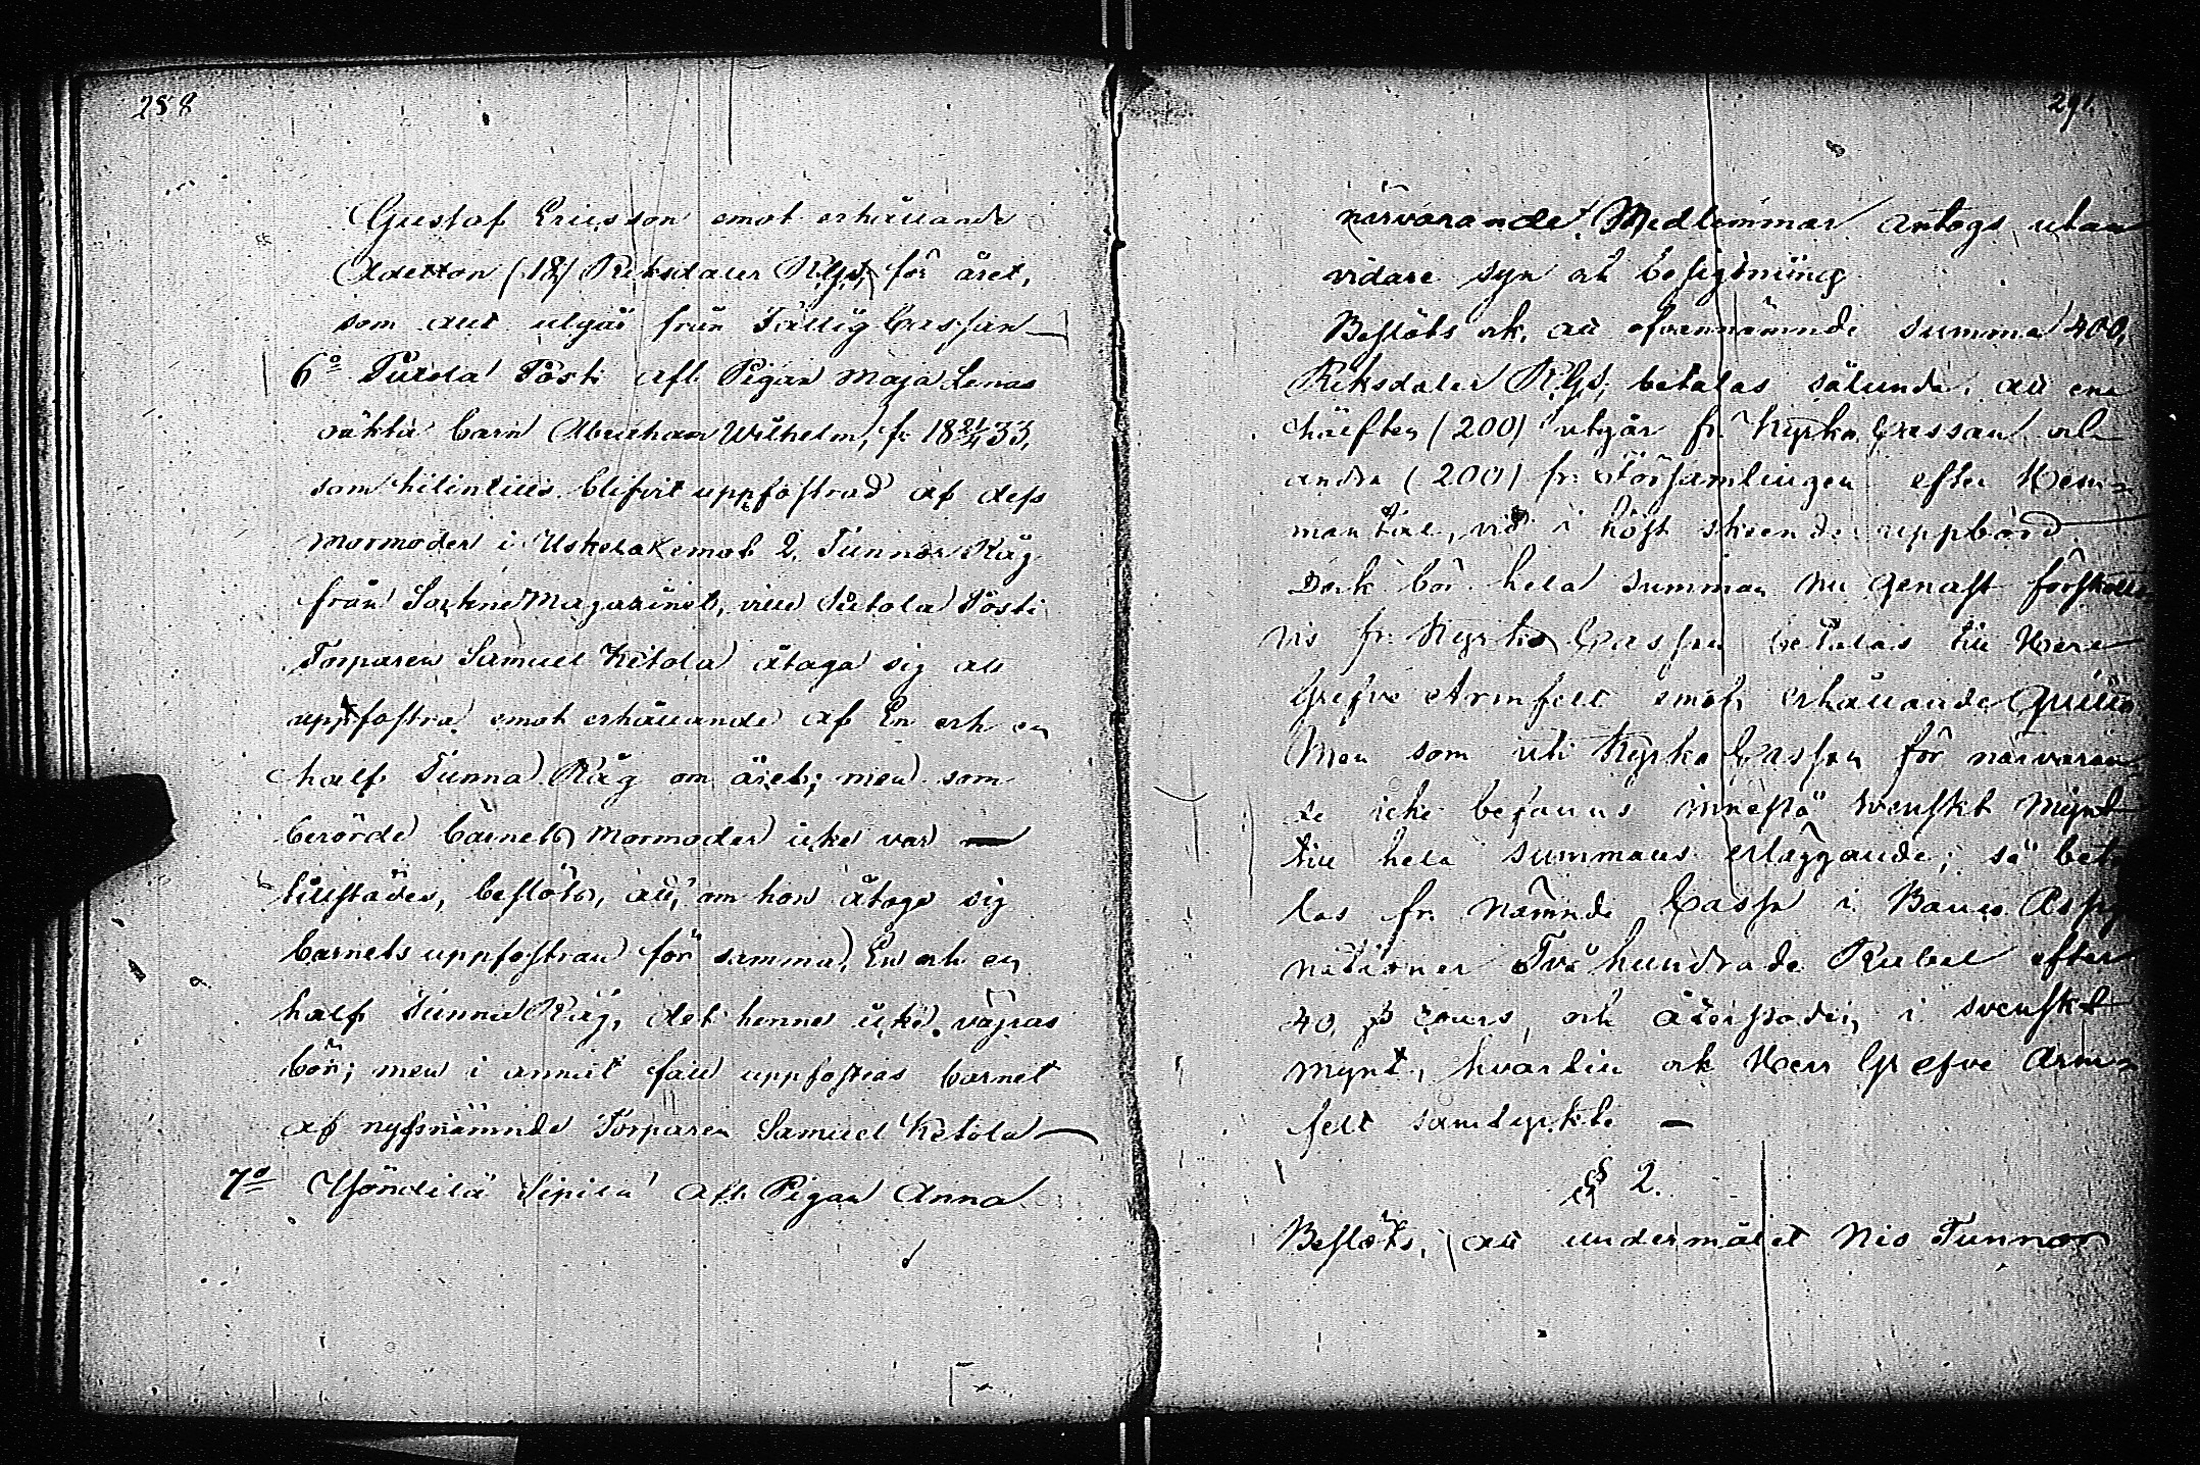 258
Gustaf Ericsson emot erhållande
Aderton (18) Riksdaler RGs, för året,
som allt utgår från Fattig Cassan
6o Tuorla Pösti afl. Pigan Maja Lenas
oäkta barn Abraham Wilhelm, f. 18 21/4 33,
som hitintills blifvit uppfostrad af dess
mormoder i Uskela emot 2. Tunnor Råg
från Sockne Magazinet, ville Pösti
Torparen Samuel Ketola åtaga sig att
uppfostra emot erhållande af En och en
half Tunna Råg om året; men som
berörde barnets Mormoder icke var —
tillstädes, beslöts, att, om hon åtager sig
barnets uppfostran för samma, En och en
half Tunna Råg, det henne icke vägras
bör; men i annat fall uppfostras barnet
af nyssnämnde Torparen Samuel Ketola —
7o Sipilä afl. Pigan Anna
291.
närvarande Medlemmar antogs utan
vidare syn och besigtning
Beslöts ock, att ofvannämnde summa 400,
Riksdaler RGs, betalas sålunda, att ena
hälften (200) utgår fr. Kyrko Cassan och
andra (200) fr. Församlingen efter Hem=
mantal, vid i höst skeende uppbörd.
Dock bör hela summan nu genast förskotts
vis fr. Kyrko Cassan betalas till Herr
Grefve Armfelt emot erhållande
Men som uti Kyrko Cassan för närvaran=
de icke befanns innestå svenskt Mynt
till hela summans erläggande, så beta
las fr. Nämnde Cassa i Banco Assig
nationer Två hundrade Rubel efter
40, ß cours, och återstoden i svenskt
mynt, hvartill ock Herr Grefve Arm=
felt samtyckte —
§ 2.
Beslöts, att undermålet Nio Tunnor